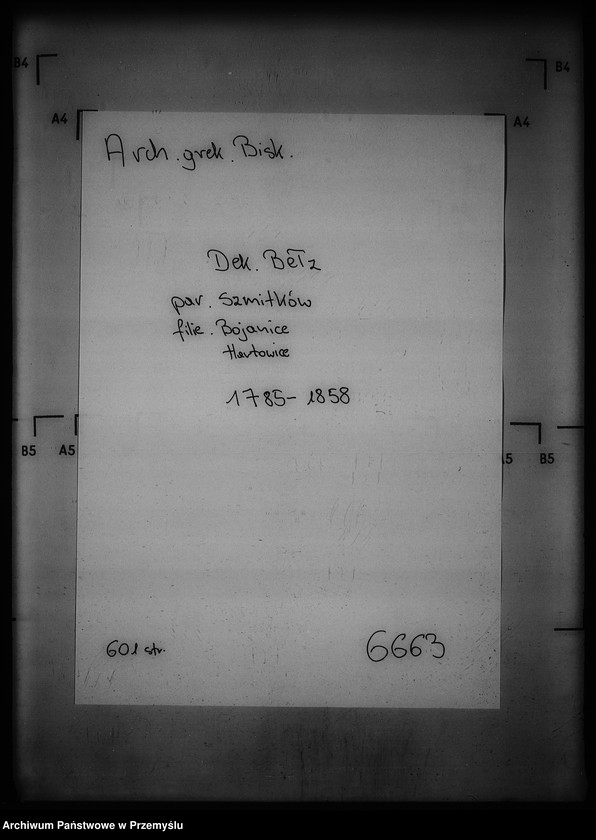 B4
B4
A4
A4
Arch. grek. Bisk.
Dek. Bełz
par. Szmitków
filie. Bojanice
Hartowice
1785-1858
B5 A5
A5 B5
601 str.
6663
Archiwum Państwowe w Przemyślu